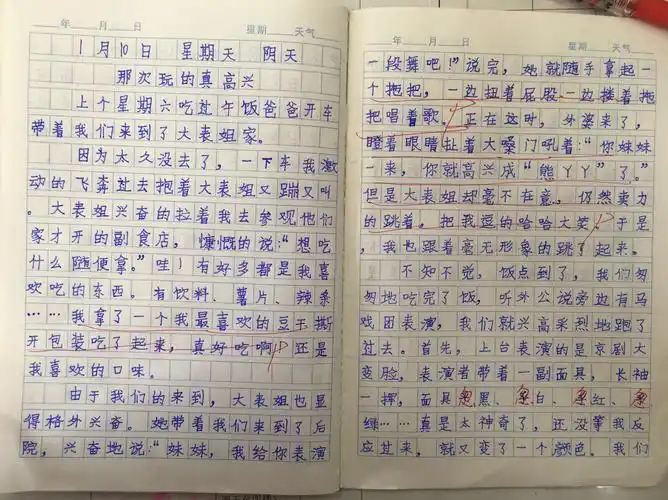 年 月 日 星期 天气
1月10日 星期天 阴天
那次玩的真高兴
上个星期六吃过午饭爸爸开车
带着我们来到了大表姐家。
因为太久没去了，一下车我激
动的飞奔过去抱着大表姐又蹦又叫
。大表姐兴奋的拉着我去参观他们
家才开的副食店，慷慨的说：“想吃
什么随便拿。”哇！有好多都是我喜
欢吃的东西。有饮料、薯片、辣条
……我拿了一个我最喜欢的豆干撕
开包装吃了起来，真好吃啊！还是
我喜欢的口味。
由于我们的来到，大表姐也显
得格外兴奋。她带着我们来到了后
院，兴奋地说：“妹妹，我给你表演
年 月 日 星期 天气
一段舞吧！”说完，她就随手拿起一
个拖把，一边扭着屁股一边搂着拖
把唱着歌。正在这时，外婆来了，
瞪着眼睛扯着大嗓门吼着：“你妹妹
一来，你就高兴成“熊丫丫”了。”
但是大表姐却毫不在意，仍然卖力
的跳着。把我逗的哈哈大笑，于是
，我也跟着毫无形象的跳了起来。
不知不觉，饭点到了，我们匆
匆地吃完了饭，听外公说旁边有马
戏团表演，我们就兴高采烈地跑了
过去。首先，上台表演的是京剧大
变脸，表演者带着一副面具，长袖
一挥，面具黑、白、红、
绿……真是太神奇了，还没等我反
应过来，就又变了一个颜色。我们